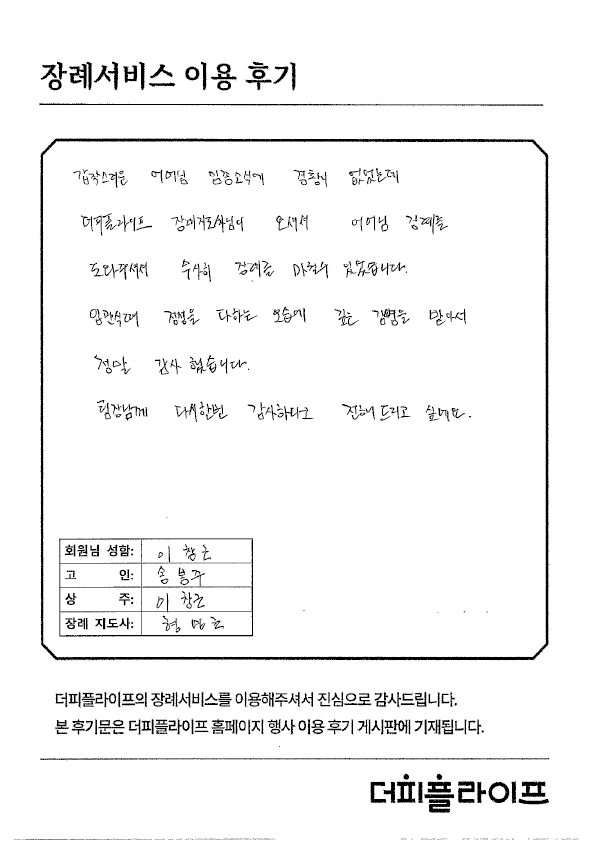 장례서비스 이용 후기
갑작스러운 어머님 임종소식에 경황이 없었는데
더피플라이프 장례지도사님이 오셔서 어머님 장례를
도와주셔서 무사히 장례를 마칠수 있었습니다.
입관식때 정성을 다하는 모습에 깊은 감명을 받아서
정말 감사 했습니다.
팀장님께 다시한번 감사하다고 전해 드리고 싶네요.
회원님 성함: 이창근
고 인: 송봉주
상 주: 이창근
장례 지도사:
더피플라이프의 장례서비스를 이용해주셔서 진심으로 감사드립니다.
본 후기문은 더피플라이프 홈페이지 행사 이용 후기 게시판에 기재됩니다.
더피플라이프